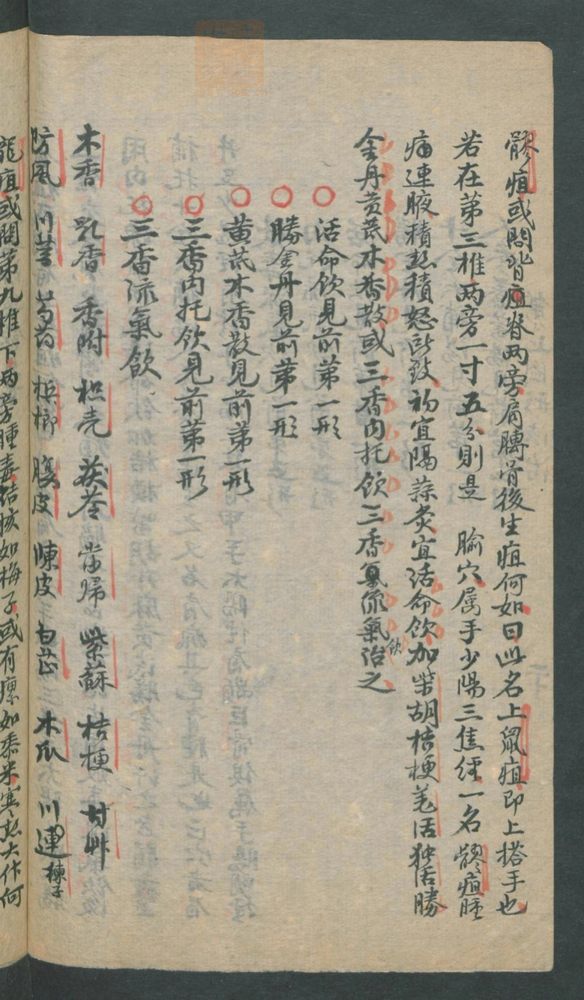 髎疽或問背膂脊兩旁肩膊骨後生疽何如曰此名上鼠疽即上搭手也
若在第三椎兩旁一寸五分則是 腧穴属手少陽三焦経一名髎疽腫
痛連腋積熱積怒所致初宜隔蒜灸宜活命飲加柴胡桔梗羗活独活勝
金丹黄芪木香散或三香内托飲三香流氣飲治之
活命飲見前第一形
勝金丹見前第一形
黄芪木香散見前第一形
三香内托飲見前第一形
三香流氣飲
木香 乳香 香附 枳壳 茯苓 當歸 紫蘇 桔梗 甘艸
防風 川芎 芍药 梹榔 腹皮 陳皮 白芷 木瓜 川楝子
龍疽或問第九椎下兩旁腫毒結核如梅子或有瘰如黍米寒熱大作何